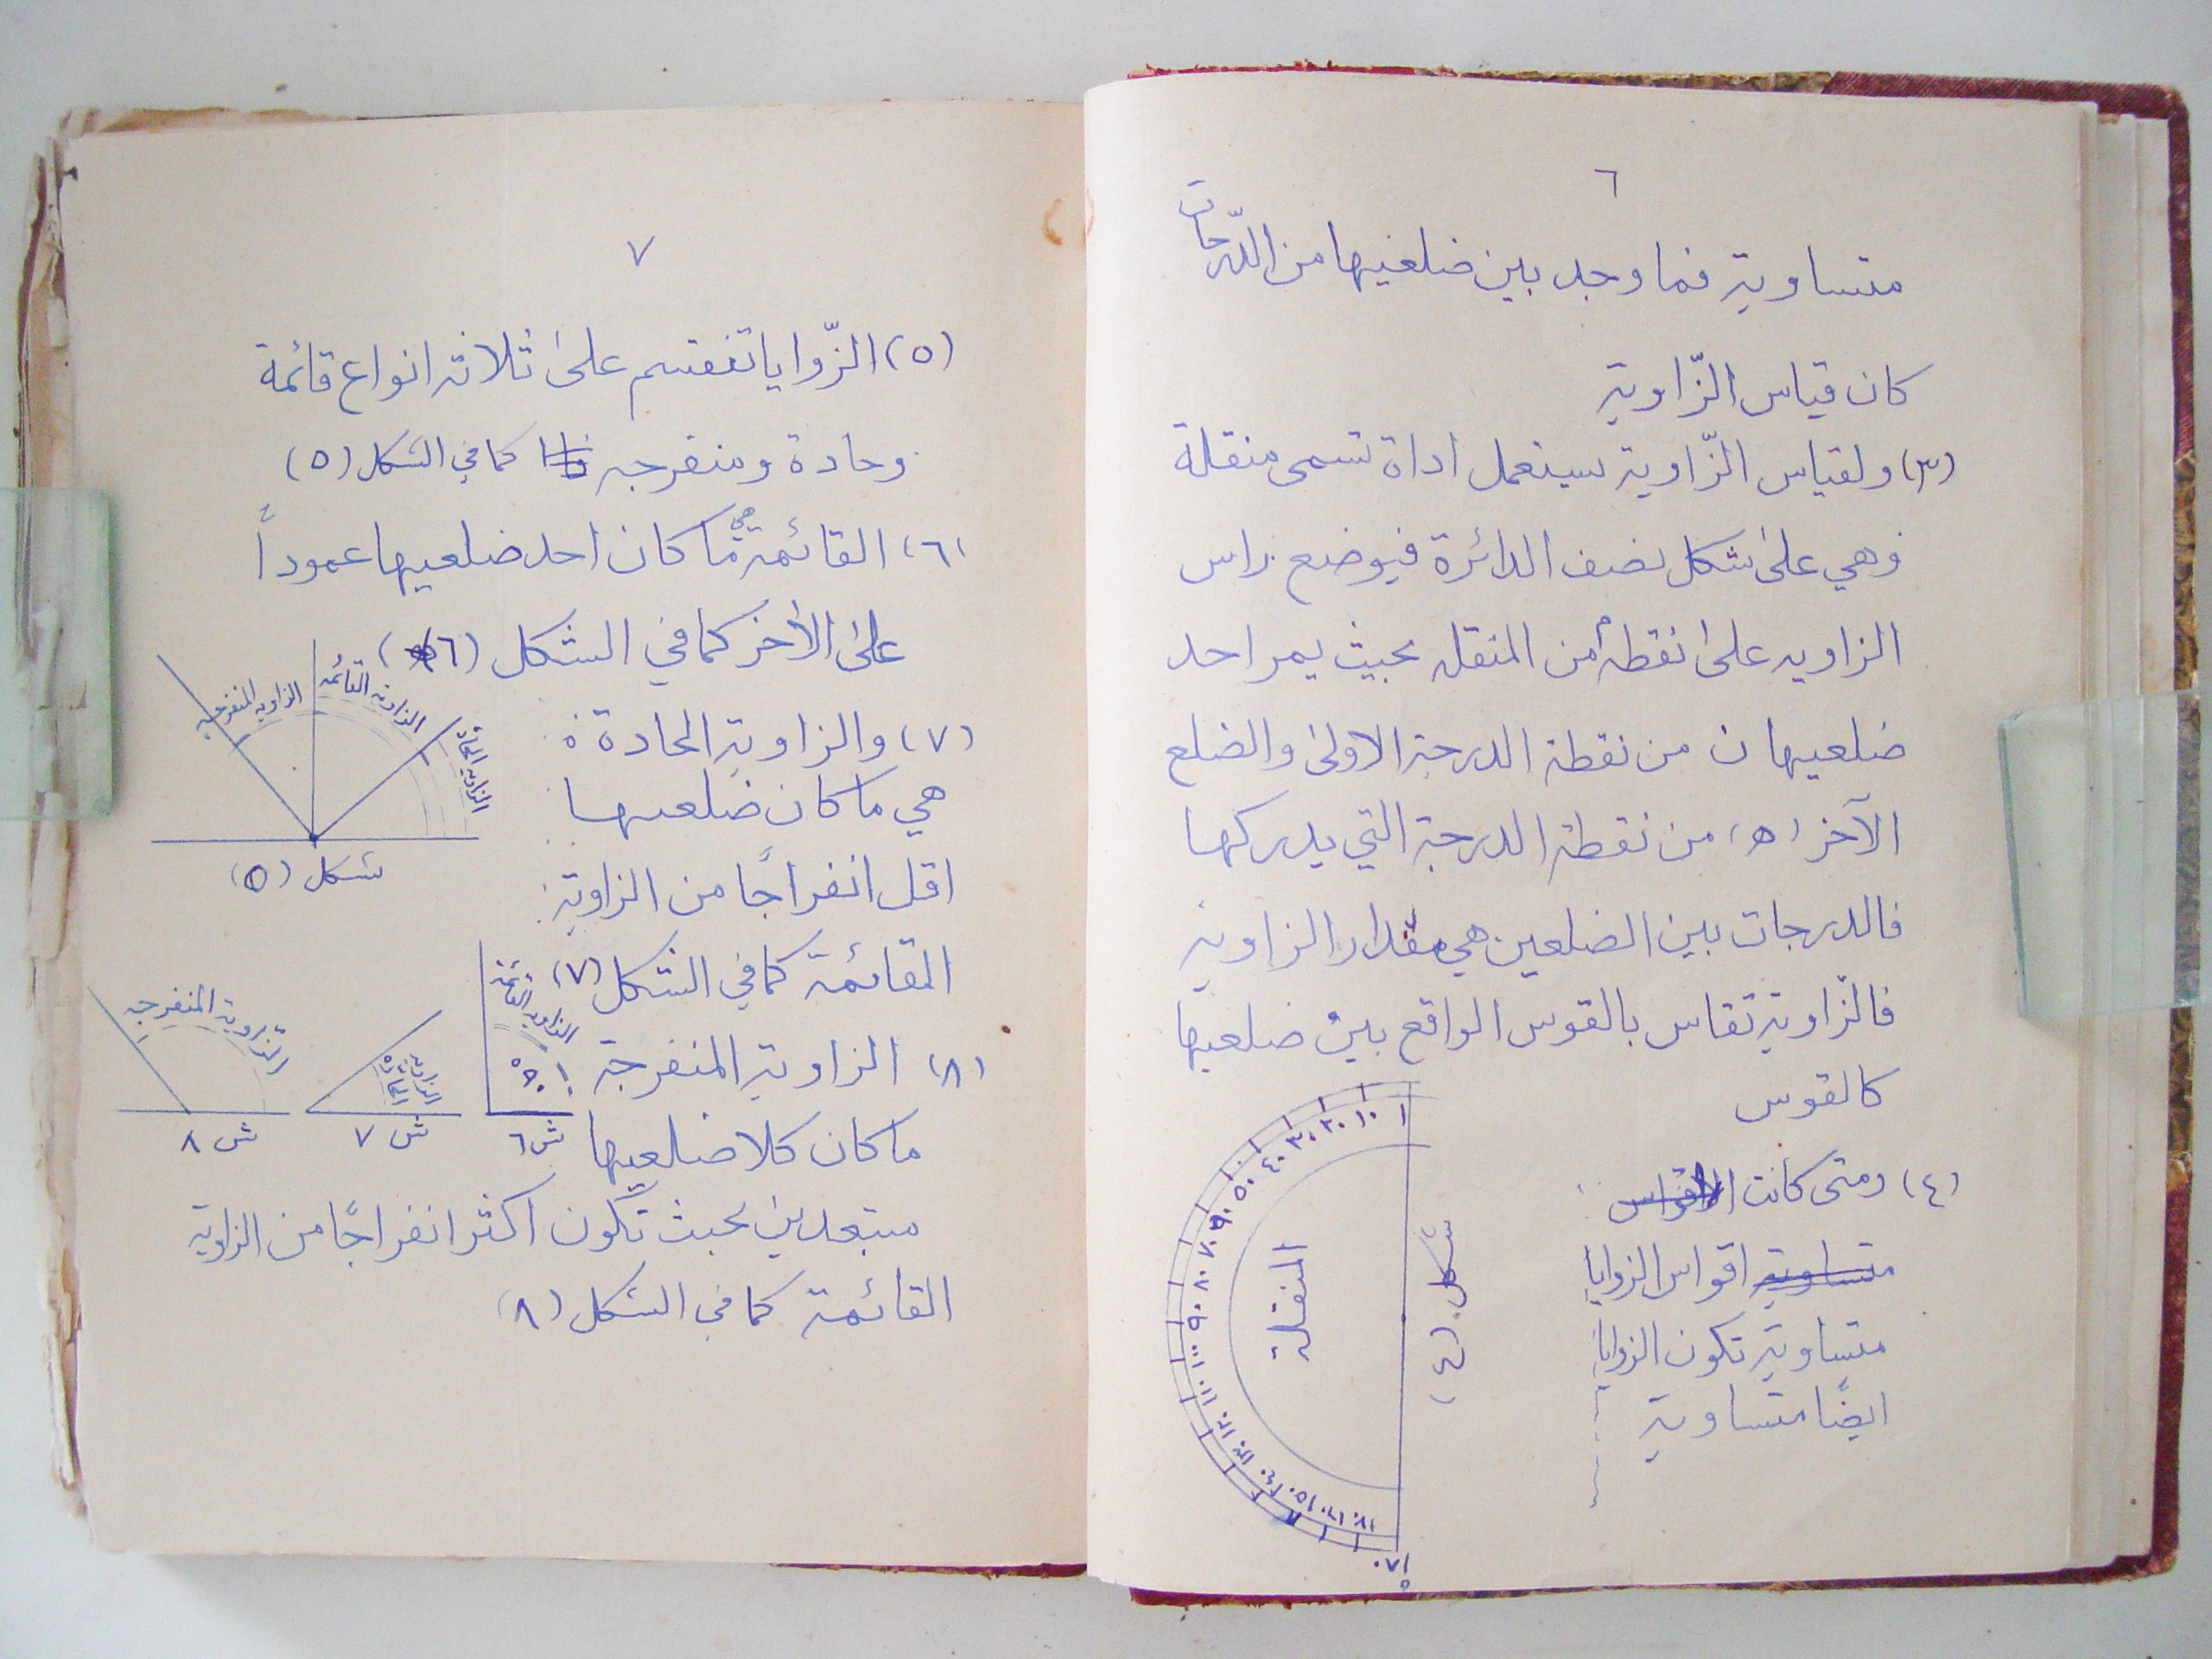 ٦
متساوية فما وجد بين ضلعيها من الدّرجات
كان قياس الزّاوية
(٣) ولقياس الزّاوية يستعمل اداة تسمى منقلة
وهي على شكل نصف الدائرة فيوضع راس
الزاويه على نقطة من المنقله بحيث يمر احد
ضلعيها ن من نقطة الدرجة الاولى والضلع
الآخر (ه) من نقطة الدرجة التي يدركها
فالدرجات بين الضلعين هي مقدار الزاوية
فالزّاوية تقاس بالقوس الواقع بين ضلعيها
كالقوس
(٤) ومتى كانت الاقواس
متساوية اقواس الزوايا
متساوية تكون الزوايا
ايضًا متساوية
شكل (٤)
المنقلة
١ ١٠ ٢٠ ٣٠ ٤٠ ٥٠ ٧٠ ٨٠ ٩٠ ١٠٠ ١١٠ ١٤٠ ١٥٠
٧
(٥) الزّوايا تنقسم على ثلاثة انواع قائمة
وحادة ومنفرجه كما في الشكل (٥)
(٦) القائمة هي ما كان احد ضلعيها عموداً
على الأخر كما في الشكل (٦)
(٧) والزاوية الحادة :
هي ما كان ضلعيها
اقل انفراجًا من الزاوية
القائمة كما في الشكل (٧)
(٨) الزاوية المنفرجة
ما كان كلا ضلعيها
مبتعدين بحيث تكون اكثر انفراجًا من الزاوية
القائمة كما في الشكل (٨)
الزاويه المنفرجه
الزاوية القائمه
الزاوية الحادة
شكل (٥)
الزاوية القائمة
٩٠
ش ٦
الزاوية الحادة
ش ٧
الزاوية المنفرجه
ش ٨